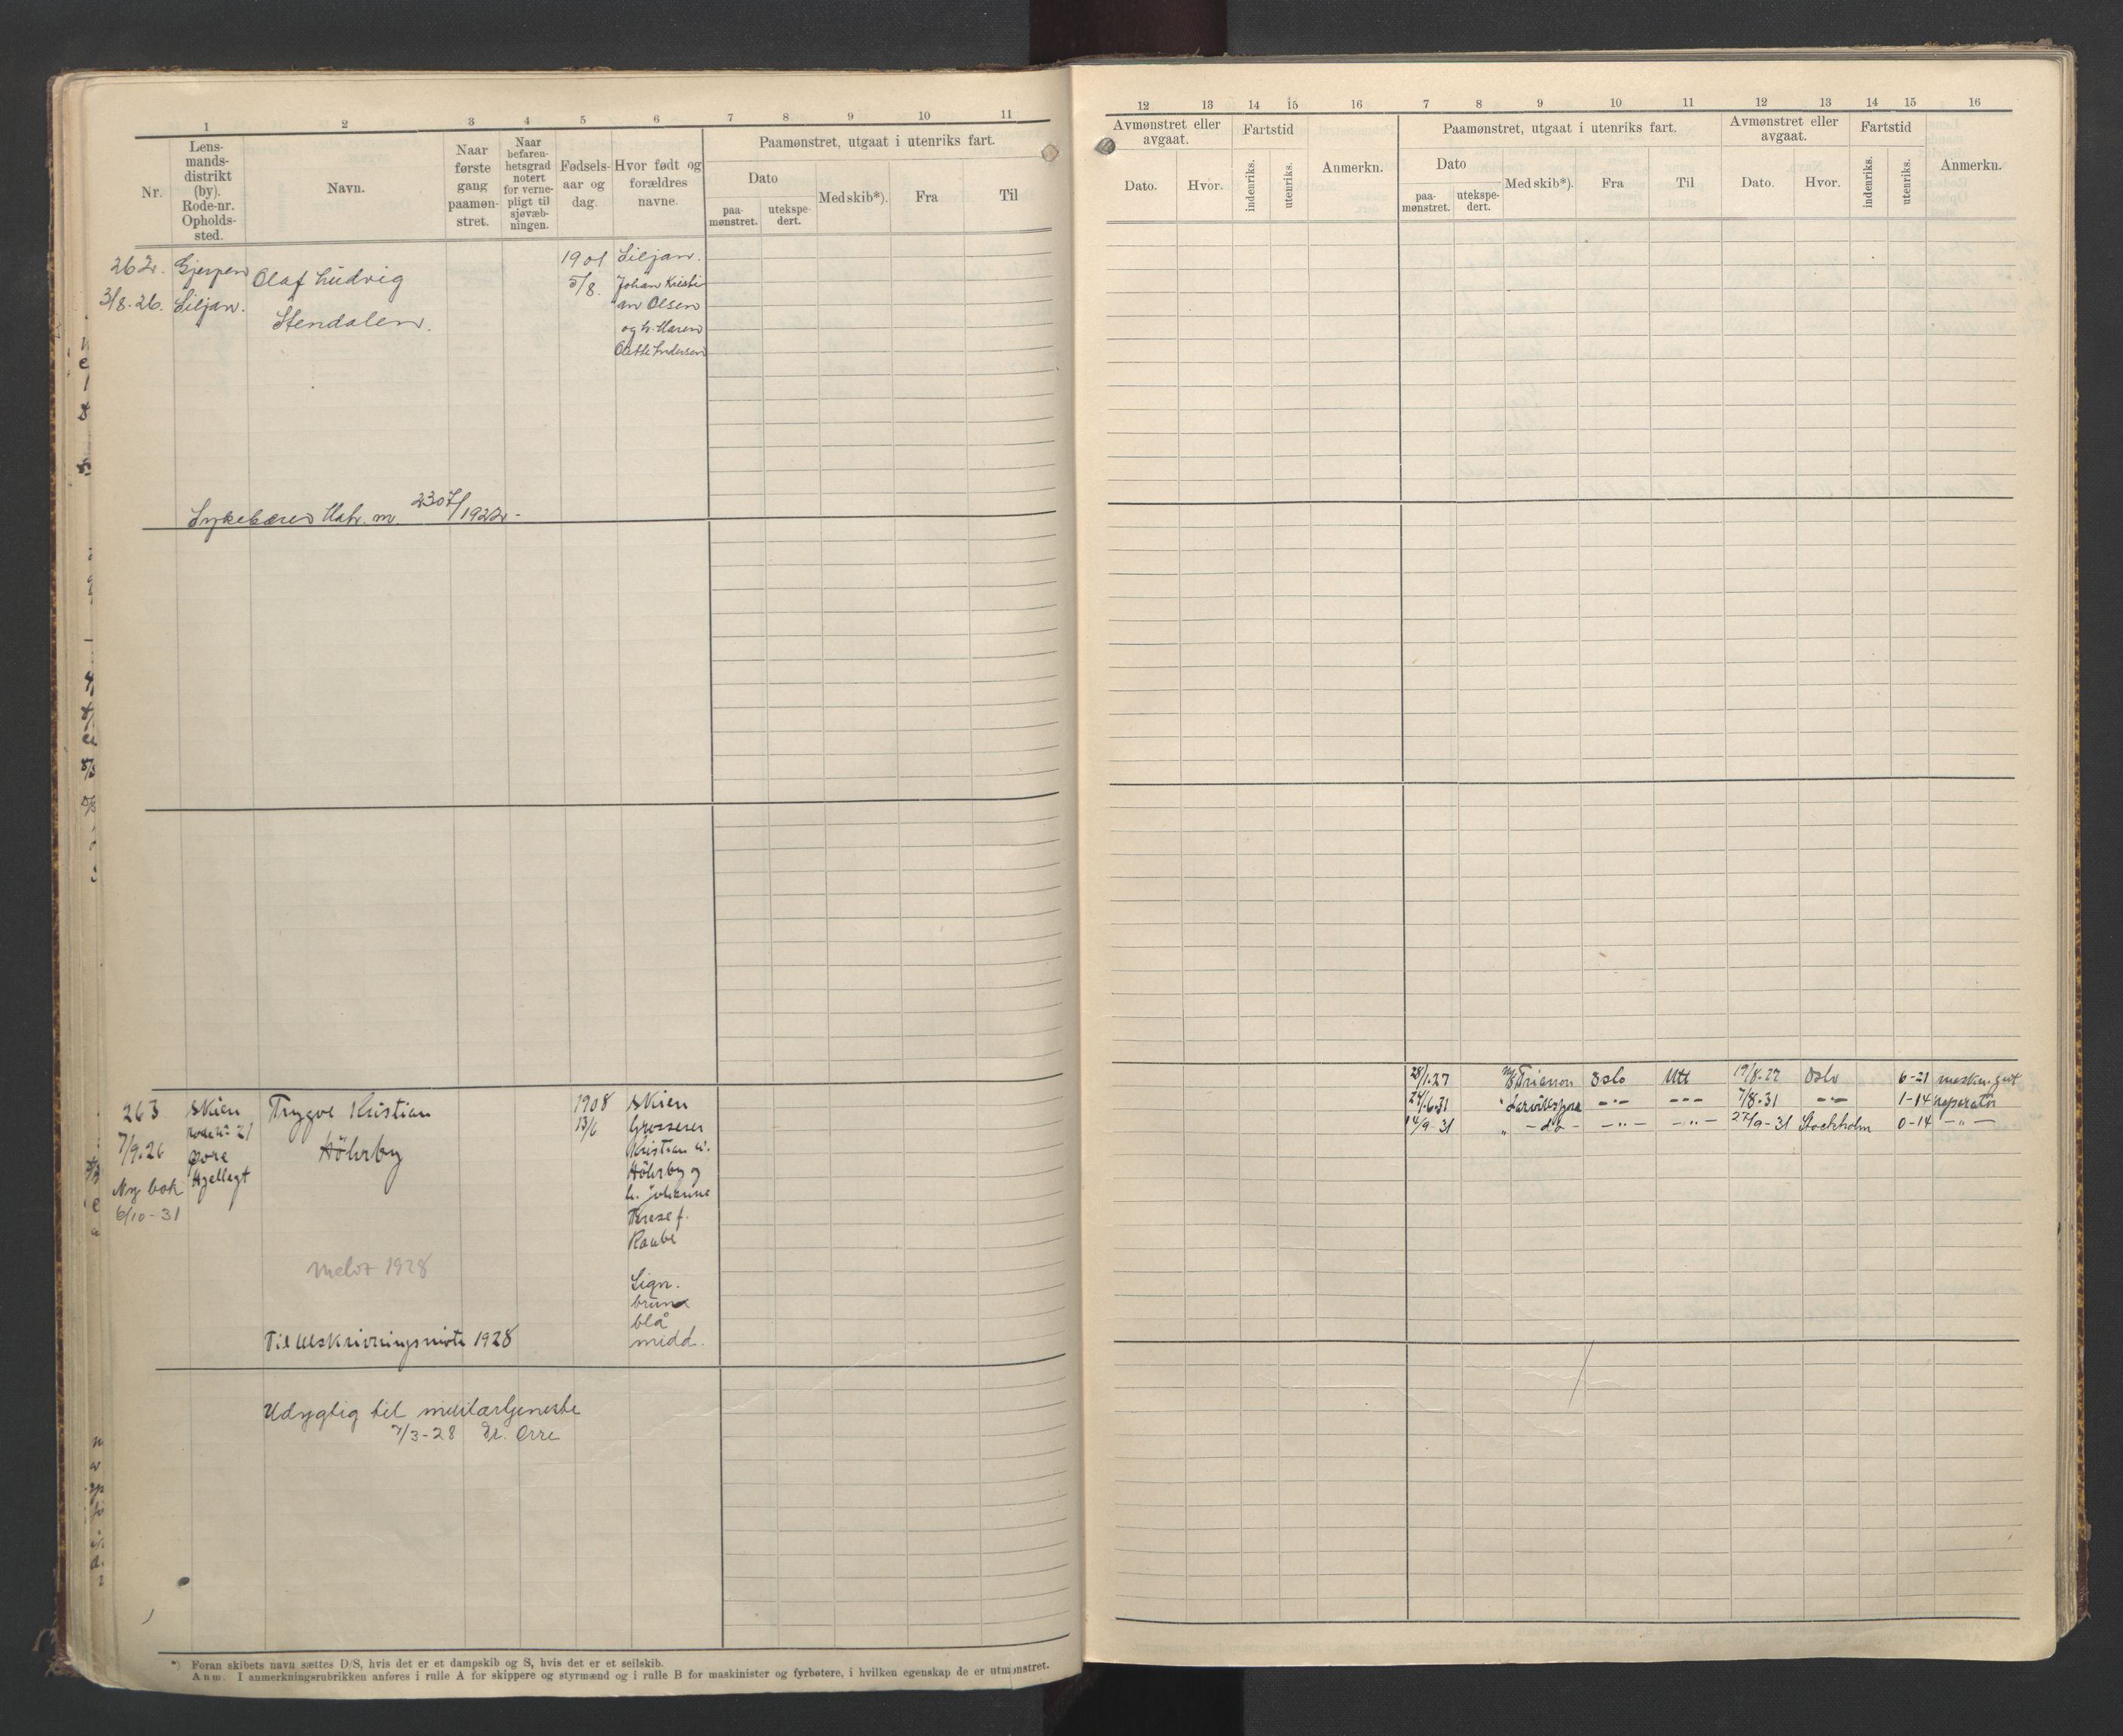 1 2 3 4 5 6 7 8 9 10 11
Nr.
Lens-
mands-
distrikt
(by).
Rode-nr.
Opholds-
sted.
Navn.
Naar
første
gang
paamøn-
stret.
Naar
befaren-
hetsgrad
notert
for verne-
pligt til
sjøvæb-
ningen.
Fødsels-
aar og
dag.
Hvor født og
forældres
navne.
Paamønstret, utgaat i utenriks fart.
Dato
paa-
mønstret.
utekspe-
dert.
Med skib*).
Fra
Til
262.
3/8.26.
Gjerpen
Siljan.
Olaf Ludvig
Stendalen.
1901
5/8.
Siljan.
Johan Kristi
an Olsen
og h. Maren
Olette Andersen
Sykebærer Matr. nr. 2307/1922.-
263
7/9.26
Ny bok
6/10-31
Skien
rode nr 21
øvre
Hjellegt
Trygve Kristian
Höhrby
1908
13/6
Skien
Grosserer
Kristian
Höhrby og
h. Johanne
f.
Sign.
brune
blå
midd.
1928
Til utskrivningsmøte 1928
Udygtig til militærtjeneste
7/3-28 Dr. Orre
*) Foran skibets navn sættes D/S, hvis det er et dampskib og S, hvis det er et seilskib.
Anm. I anmerkningsrubrikken anføres i rulle A for skippere og styrmænd og i rulle B for maskinister og fyrbøtere, i hvilken egenskap de er utmønstret.
12 13 14 15 16 7 8 9 10 11 12 13 14 15 16
Avmønstret eller
avgaat.
Dato.
Hvor.
Fartstid
indenriks.
utenriks.
Anmerkn.
Paamønstret, utgaat i utenriks fart.
Dato
paa-
mønstret.
utekspe-
dert.
Med skib*).
Fra
Til
Avmønstret eller
avgaat.
Dato.
Hvor.
Fartstid
indenriks.
utenriks.
Anmerkn.
28/1.27 M/S Trianon Oslo Utl 19/8.27 Oslo 6-21 maskin.gut
24/6.31 " -"- -"- 7/8.31 -"- 1-14 reparatør
14/9-31 " -do- -"- -"- 27/9-31 Stockholm 0-14 -"-